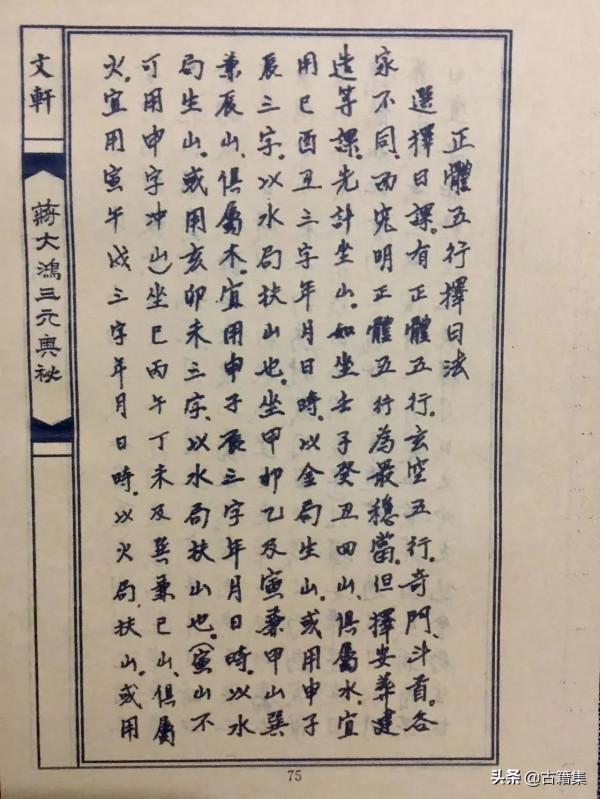 正體五行擇日法
選擇日課。有正體五行。玄空五行。奇門、斗首。各
家不同。而究明正體五行為最穩當。但擇安葬建
造等課。先計坐山。如坐壬子癸丑四山、俱屬水。宜
用巳酉丑三字年月日時。以金局生山。或用申子
辰三字。以水局扶山也。坐甲卯乙及寅兼甲山巽
兼辰山、俱屬木。宜用申子辰三字年月日時。以水
局生山。或用亥卯未三字、以水局扶山也。(寅山不
可用申字冲山)坐巳丙午丁未及巽兼巳山、俱屬
火。宜用寅午戌三字年月日時。以火局、扶山。或用
文軒
蔣大鴻三元奧秘
75
头条 @古籍集